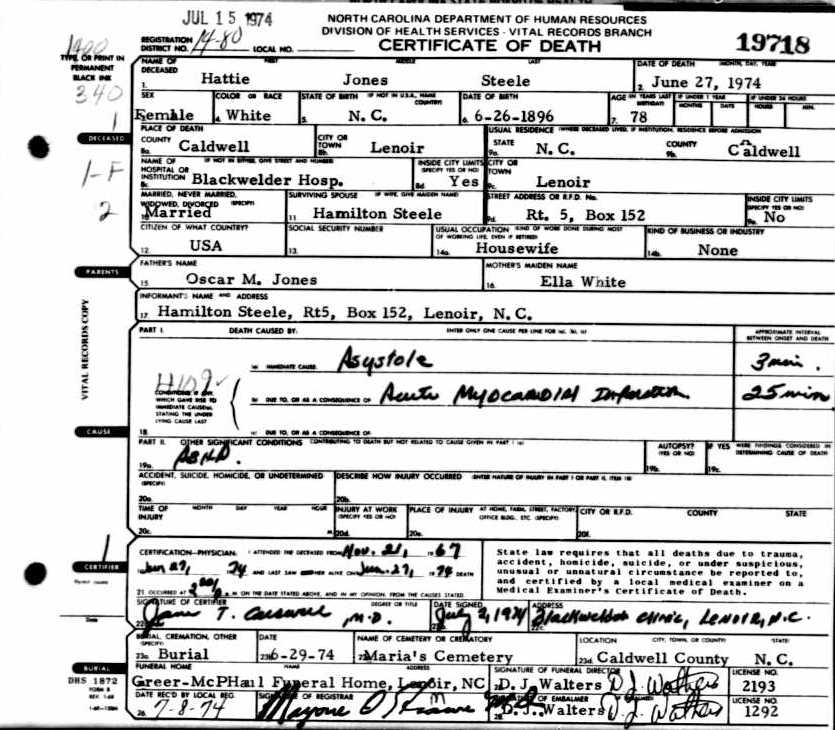 JUL 15 1974
NORTH CAROLINA DEPARTMENT OF HUMAN RESOURCES
DIVISION OF HEALTH SERVICES - VITAL RECORDS BRANCH
REGISTRATION DISTRICT NO. 14-80 LOCAL NO.
CERTIFICATE OF DEATH
19718
TYPE, OR PRINT IN PERMANENT BLACK INK
340
1
DECEASED
1-F
2
NAME OF DECEASED FIRST MIDDLE LAST
1. Hattie Jones Steele
DATE OF DEATH (MONTH, DAY, YEAR)
2. June 27, 1974
SEX
Female
COLOR OR RACE
4. White
STATE OF BIRTH (IF NOT IN U.S.A., NAME COUNTRY)
5. N. C.
DATE OF BIRTH
6. 6-26-1896
AGE (IN YEARS LAST BIRTHDAY)
7. 78
IF UNDER 1 YEAR
MONTHS DAYS
IF UNDER 24 HOURS
HOURS MIN.
PLACE OF DEATH
COUNTY
8a. Caldwell
CITY OR TOWN
8b. Lenoir
USUAL RESIDENCE (WHERE DECEASED LIVED, IF INSTITUTION, RESIDENCE BEFORE ADMISSION)
STATE
9a. N. C.
COUNTY
9b. Caldwell
NAME OF HOSPITAL OR INSTITUTION (IF NOT IN EITHER, GIVE STREET AND NUMBER)
8c. Blackwelder Hosp.
INSIDE CITY LIMITS (SPECIFY YES OR NO)
8d Yes
CITY OR TOWN
9c. Lenoir
MARRIED, NEVER MARRIED, WIDOWED, DIVORCED (SPECIFY)
10 Married
SURVIVING SPOUSE (IF WIFE, GIVE MAIDEN NAME)
11 Hamilton Steele
STREET ADDRESS OR R.F.D. No.
9d. Rt. 5, Box 152
INSIDE CITY LIMITS (SPECIFY YES OR NO)
9e. No
CITIZEN OF WHAT COUNTRY?
12. USA
SOCIAL SECURITY NUMBER
13.
USUAL OCCUPATION (KIND OF WORK DONE DURING MOST OF WORKING LIFE, EVEN IF RETIRED)
14a. Housewife
KIND OF BUSINESS OR INDUSTRY
14b. None
PARENTS
FATHER'S NAME
15. Oscar M. Jones
MOTHER'S MAIDEN NAME
16. Ella White
INFORMANT'S NAME AND ADDRESS
17. Hamilton Steele, Rt5, Box 152, Lenoir, N. C.
VITAL RECORDS COPY
PART I. DEATH CAUSED BY: ENTER ONLY ONE CAUSE PER LINE FOR (a), (b), (c)
APPROXIMATE INTERVAL BETWEEN ONSET AND DEATH
(a) IMMEDIATE CAUSE Asystole 3 min.
4109
CONDITIONS, IF ANY, WHICH GAVE RISE TO IMMEDIATE CAUSE(a), STATING THE UNDERLYING CAUSE LAST
(b) DUE TO, OR AS A CONSEQUENCE OF Acute Myocardial Infarction 25 min
18. (c) DUE TO, OR AS A CONSEQUENCE OF
CAUSE
PART II. OTHER SIGNIFICANT CONDITIONS CONTRIBUTING TO DEATH BUT NOT RELATED TO CAUSE GIVEN IN PART I (a)
19a.
AUTOPSY? (YES OR NO)
19b.
IF YES WERE FINDINGS CONSIDERED IN DETERMINING CAUSE OF DEATH
19c.
ACCIDENT, SUICIDE, HOMICIDE, OR UNDETERMINED (SPECIFY)
20a.
DESCRIBE HOW INJURY OCCURRED (ENTER NATURE OF INJURY IN PART I OR PART II, ITEM 18)
20b.
TIME OF INJURY MONTH DAY YEAR HOUR
20c. M.
INJURY AT WORK (SPECIFY YES OR NO)
20d.
PLACE OF INJURY AT HOME, FARM, STREET, FACTORY, OFFICE BLDG., ETC. (SPECIFY)
20e.
CITY OR R.F.D. COUNTY STATE
20f.
1
CERTIFIER
CERTIFICATION-PHYSICIAN: I ATTENDED THE DECEASED FROM Nov. 21, 1967
Jun 27, 74 AND LAST SAW ALIVE ON Jun. 27, 1974 DEATH
21. OCCURRED AT M ON THE DATE STATED ABOVE, AND IN MY OPINION, FROM THE CAUSES STATED.
State law requires that all deaths due to trauma,
accident, homicide, suicide, or under suspicious,
unusual or unnatural circumstance be reported to,
and certified by a local medical examiner on a
Medical Examiner's Certificate of Death.
SIGNATURE OF CERTIFIER DEGREE OR TITLE
M.D.
DATE SIGNED
July 2, 1974
ADDRESS
22c. Blackwelder Clinic, Lenoir, N.C.
Date
BURIAL, CREMATION, OTHER (SPECIFY)
23a. Burial
DATE
23b 6-29-74
NAME OF CEMETERY OR CREMATORY
Maria's Cemetery
LOCATION CITY, TOWN, OR COUNTY) STATE
23d. Caldwell County N. C.
BURIAL
DHS 1872
FUNERAL HOME NAME ADDRESS
Greer-McPHaul Funeral Home, Lenoir, NC
SIGNATURE OF FUNERAL DIRECTOR
D. J. Walters D. J. Walters
LICENSE NO.
2193
DATE REC'D BY LOCAL REG.
26. 7-8-74
SIGNATURE OF REGISTRAR
SIGNATURE OF EMBALMER
D. J. Walters D. J. Walters
LICENSE NO.
1292